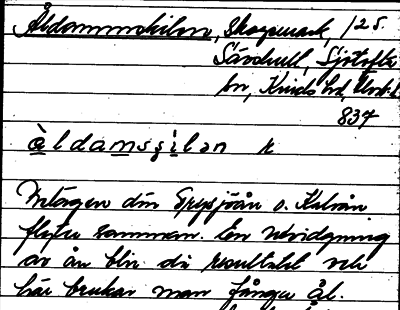 Åldammskilen, Skogsmark 1/2 S.
Sävshult, Sjötofta
sn, Kinds hd, Älvsb. l.
837
àldamsʂìlən k
Intagen där Spysjöån o. Kalvån
flyter samman. En utvidgning
av ån blir då resultatet och
här brukar man fånga ål.